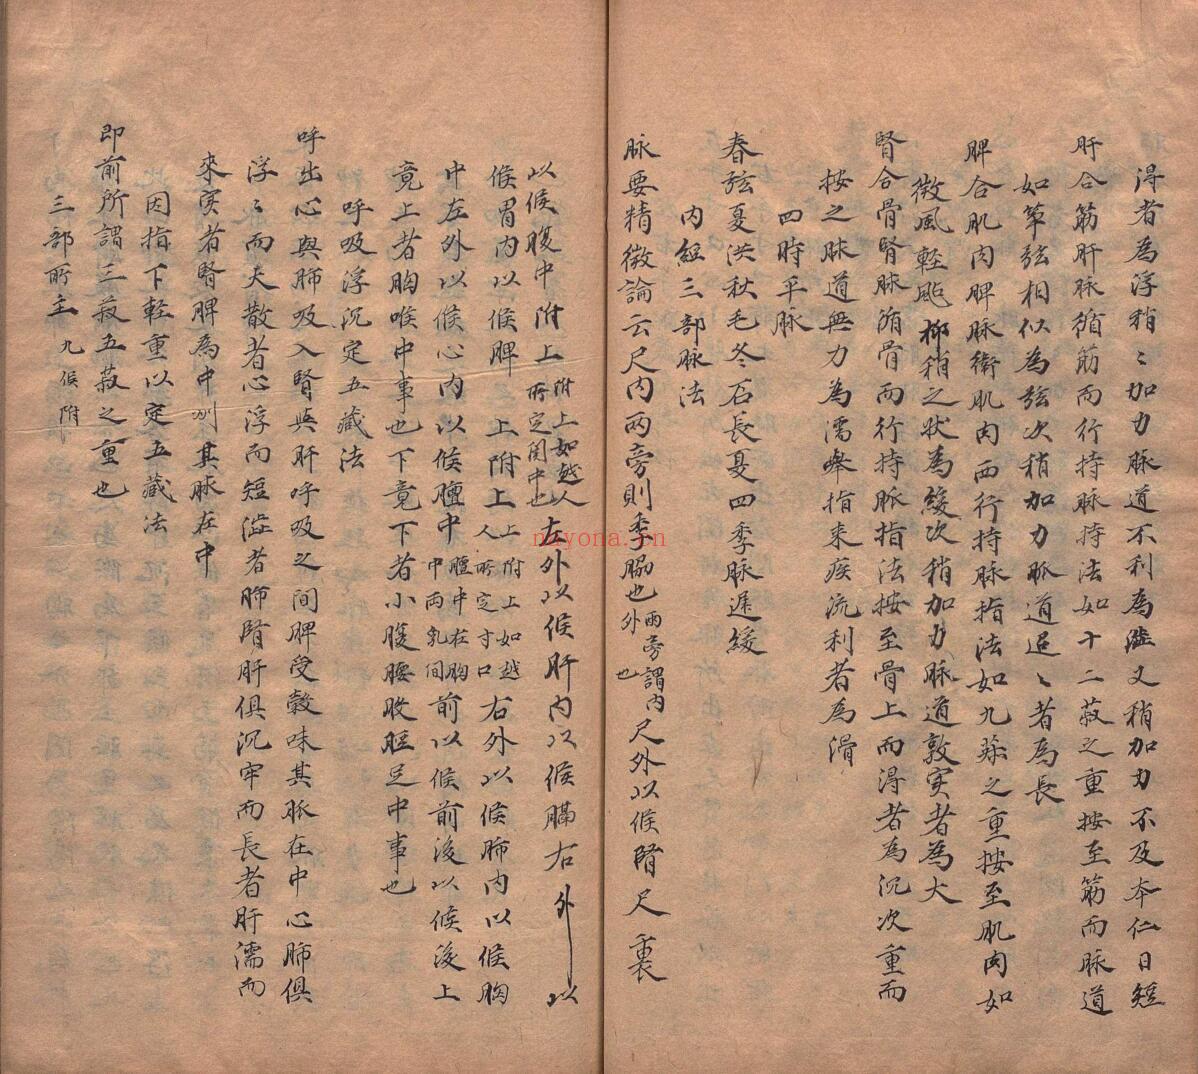 得者為浮稍〻加力脉道不利為濇又稍加力不及本仁曰短
肝合筋肝脉循筋而行持脉持法如十二菽之重按至筋而脉道
如箏弦相似為弦次稍加力脈道迢〻者為長
脾合肌肉脾脉循肌肉而行持脉指法如九菽之重按至肌肉如
微風輕颭柳稍之狀為緩次稍加力脉道敦实者為大
腎合骨腎脉循骨而行持脈指法按至骨上而得者為沉次重而
按之脉道無力為濡舉指来疾流利者為滑
四時平脉
春弦夏洪秋毛冬石長夏四季脉遲緩
内經三部脉法
脉要精微論云尺内两旁則季脇也兩旁謂内外也尺外以候腎尺裏
以候腹中附上附上如越人所定関中也左外以候肝内以候膈右外以
候胃内以候脾上附上上附上如越人所定寸口右外以候肺内以候胸
中左外以候心内以候膻中膻中在胸中两乳間前以候前後以候後上
竟上者胸喉中事也下竟下者小腹腰股脛足中事也
呼吸浮沉定五藏法
呼出心與肺吸入腎與肝呼吸之間脾受穀味其脈在中心肺俱
浮〻而大散者心浮而短澁者肺腎肝俱沉牢而長者肝濡而
來实者腎脾為中州其脉在中
因指下軽重以定五藏法
即前所謂三菽五菽之重也
三部所主九候附
niyona.cn